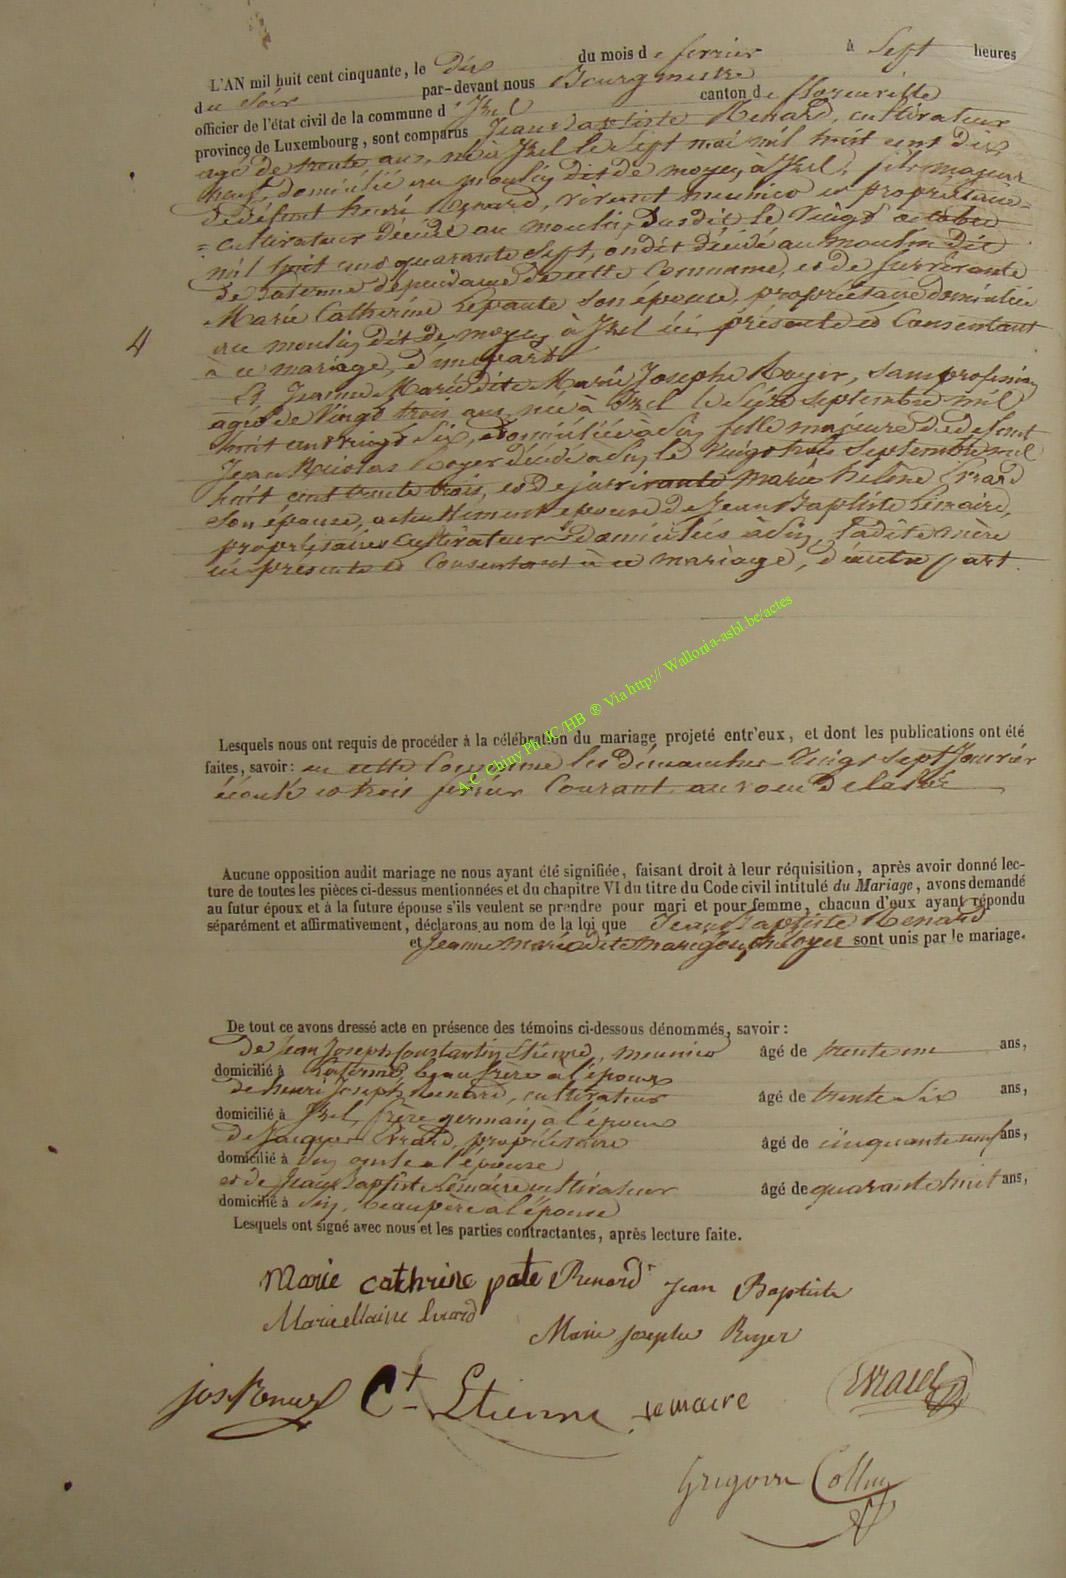 L'AN mil huit cent cinquante, le dix du mois de fevrier à Sept heures
du Soir par-devant nous Bourgmestre
officier de l'état civil de la commune d'Izel canton de florenville
province de Luxembourg, sont comparus Jean Baptiste Renard, cultivateur
agé de trente ans, né à Izel le Sept mai mil huit cent dix
neuf, domicilié au moulin dit de moyen, à Izel, fils majeur
de défunt henri Renard, vivant meunier et propriétaire=
=cultivateur décédé au moulin, Susdit le Vingt octobre
mil huit cent quarante Sept, décédé au moulin dit
de Laterme dépendance de cette Commune, et de survivante
Marie Catherine Lepaute Son épouse, propriétaire domiciliée
au moulin dit de moyen à Izel ici présente et Consentant
à ce mariage, d'une part
Et Jeanne Marie dite Marie Josephe Royer, Sans profession
agée de Vingt trois ans, née à Izel le Six Septembre mil
huit cent vingt Six, domiciliée à fille majeure de defunt
Jean Nicolas Royer décédé à le Vingt trois Septembre mil
huit cent trente trois, et de survivante marie hélène Evrard
Son épouse, actuellement épouse de Jean Baptiste Lemaire,
propriétaires Cultivateurs domiciliés à ladite mère
ici présente et Consentant à ce mariage, d'autre part.
4
Lesquels nous ont requis de procéder à la célébration du mariage projeté entr'eux, et dont les publications ont été
faites, savoir: en cette Commune les dimanches Vingt Sept Janvier
écoulé et trois fevrier Courant au voeu de la loi
Aucune opposition audit mariage ne nous ayant été signifiée, faisant droit à leur réquisition, après avoir donné lec-
ture de toutes les pièces ci-dessus mentionnées et du chapitre VI du titre du Code civil intitulé du Mariage, avons demandé
au futur époux et à la future épouse s'ils veulent se prendre pour mari et pour femme, chacun d'eux ayant répondu
séparément et affirmativement, déclarons au nom de la loi que Jean Baptiste Renard
et Jeanne Marie dite Marie Josephe Royer sont unis par le mariage.
De tout ce avons dressé acte en présence des témoins ci-dessous dénommés, savoir:
de Jean Joseph Constantin Etienne, meunier âgé de trente un ans,
domicilié à Laterme, beau frère à l'époux
de henri Joseph Renard, cultivateur âgé de trente Six ans,
domicilié à Izel, frère germain à l'époux
de Jacques Evrard, propriétaire âgé de cinquante neuf ans,
domicilié à oncle à l'épouse
et de Jean Baptiste Lemaire cultivateur âgé de quarante huit ans,
domicilié à beau père à l'épouse
Lesquels ont signé avec nous et les parties contractantes, après lecture faite.
Marie cathrine pate Renard Jean Baptiste
Marie Evrard Marie Josephe Royer
jos Renard Ct Etienne Lemaire Evrard
Grégoire Collin
A.C. Chiny Ph JC/HB ® Via http:// Wallonia-asbl.be/actes